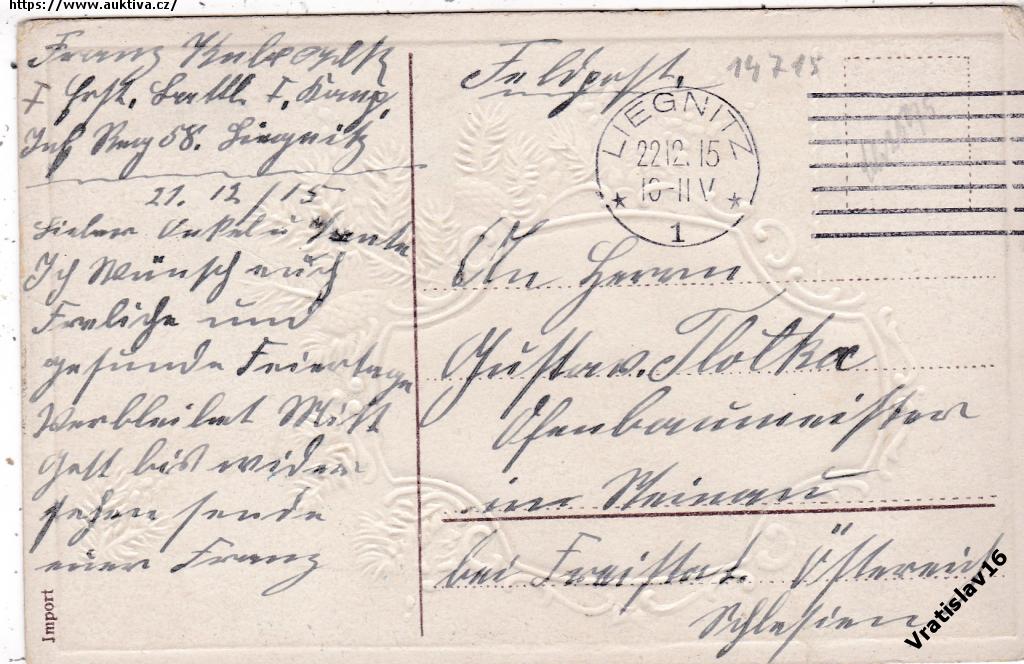 https://www.auktiva.cz/
Franz
I Ers. Batll. I. Komp.
Inf Reg 58. Liegnitz
21. 12/15
Lieber Onkel u Tante
Ich Wünsch euch
Freliche und
gesunde Feiertage
Verbleibet Mitt
Gott bis wider
sehen sende
euer Franz
Import
Feldpost.
14715
LIEGNITZ
22.12.15
10-11 V
* 1 *
An Herrn
Gustav. Tlolka
Ofenbaumeister
in Steinau
bei Freistat. Östereich
Schlesien
Vratislav16